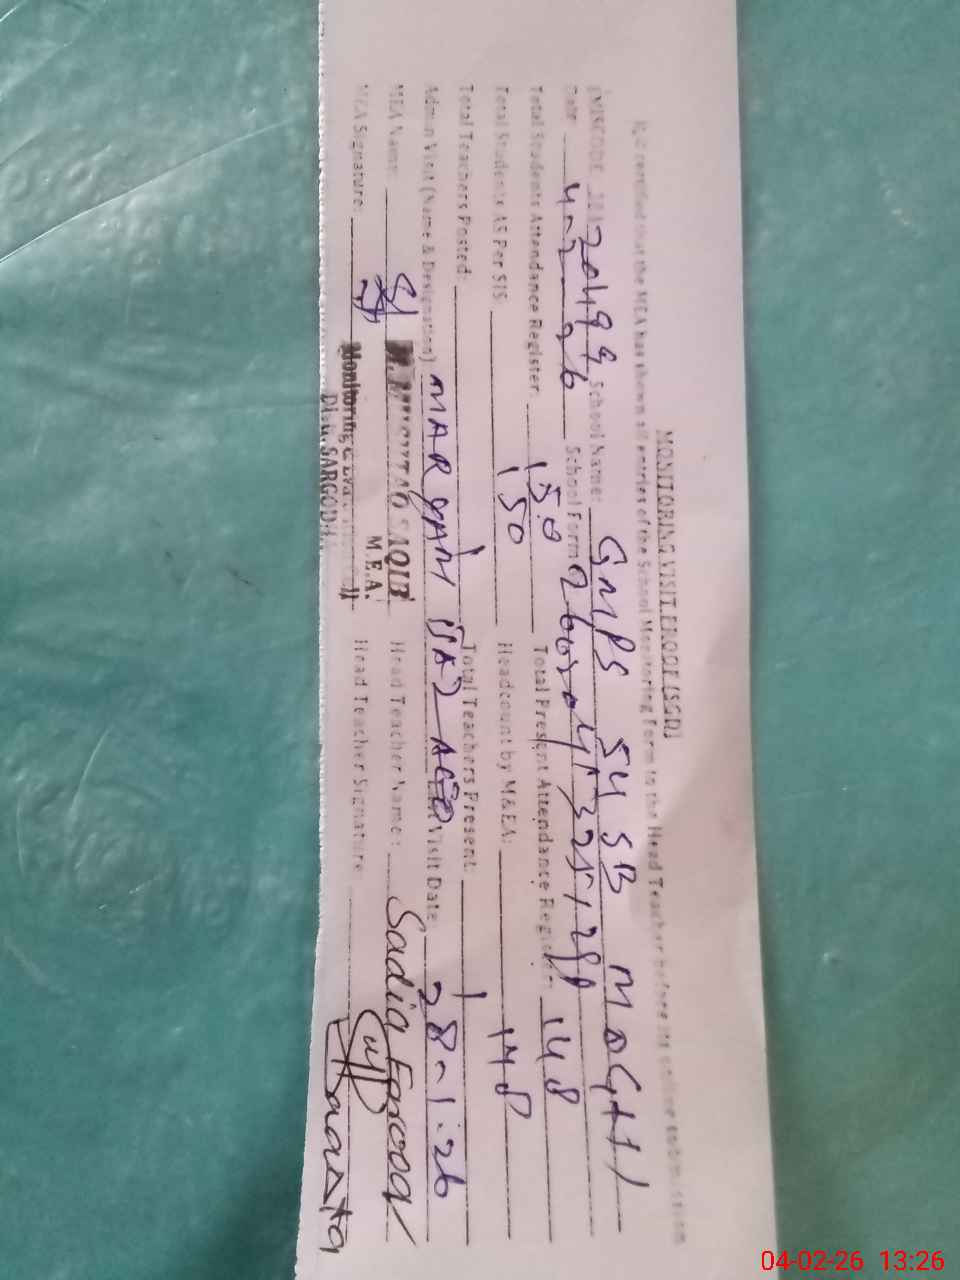 MONITORING VISIT PROOF [SGD]
It is certified that the MEA has shown all entries of the School Monitoring Form to the Head Teacher before its online submission
EMISCODE: 38120499 School Name: GMPS 54 SB MOGHI
Date: 4-2-26 School Form
Total Students Attendance Register: 150 Total Present Attendance Register: 148
Total Students AS Per SIS: 150 Headcount by M&EA: 148
Total Teachers Posted: 1 Total Teachers Present: 1
Admin Visit (Name & Designation) MARYAM Visit Date: 28-1-26
MEA Name: SAQIB Head Teacher Name: Sadia Farooq
M.E.A.
MEA Signature: Head Teacher Signature:
Monitoring
SARGODHA
04-02-26 13:26